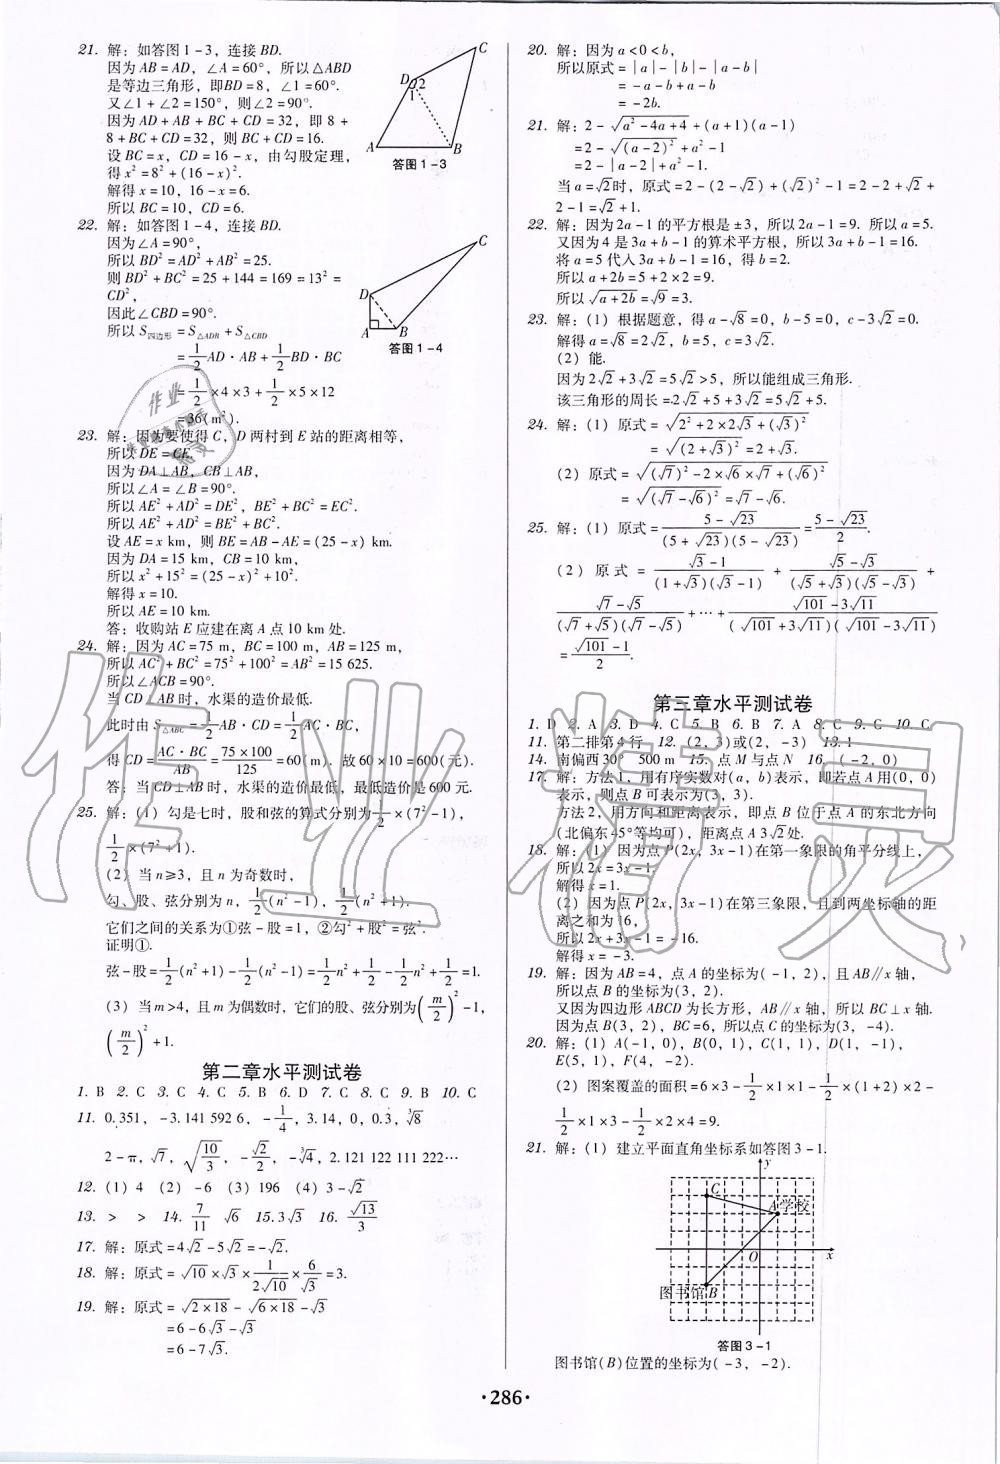 21. 解：如答图1-3，连接BD.
因为AB=AD，∠A=60°，所以△ABD
是等边三角形，即BD=8，∠1=60°.
又∠1+∠2=150°，则∠2=90°.
因为AD+AB+BC+CD=32，即8+
8+BC+CD=32，则BC+CD=16.
设BC=x，CD=16-x，由勾股定理，
得x²=8²+(16-x)².
解得x=10，16-x=6.
所以BC=10，CD=6.
A B C D 1 2
答图1-3
22. 解：如答图1-4，连接BD.
因为∠A=90°，
所以BD²=AD²+AB²=25.
则BD²+BC²=25+144=169=13²=
CD²，
因此∠CBD=90°.
所以S四边形=S△ADB+S△CBD
=1/2 AD·AB+1/2 BD·BC
=1/2×4×3+1/2×5×12
=36(m²).
A B C D
答图1-4
23. 解：因为要使得C，D两村到E站的距离相等，
所以DE=CE.
因为DA⊥AB，CB⊥AB，
所以∠A=∠B=90°.
所以AE²+AD²=DE²，BE²+BC²=EC².
所以AE²+AD²=BE²+BC².
设AE=x km，则BE=AB-AE=(25-x) km.
因为DA=15 km，CB=10 km，
所以x²+15²=(25-x)²+10².
解得x=10.
所以AE=10 km.
答：收购站E应建在离A点10 km处.
24. 解：因为AC=75 m，BC=100 m，AB=125 m，
所以AC²+BC²=75²+100²=AB²=15 625.
所以∠ACB=90°.
当CD⊥AB时，水渠的造价最低.
此时由S△ABC=1/2 AB·CD=1/2 AC·BC，
得CD=AC·BC/AB=75×100/125=60(m). 故60×10=600(元).
答：当CD⊥AB时，水渠的造价最低，最低造价是600元.
25. 解：(1) 勾是七时，股和弦的算式分别为1/2×(7²-1)，
1/2×(7²+1).
(2) 当n≥3，且n为奇数时，
勾、股、弦分别为n，1/2(n²-1)，1/2(n²+1).
它们之间的关系为①弦-股=1，②勾²+股²=弦².
证明①.
弦-股=1/2(n²+1)-1/2(n²-1)=1/2n²+1/2-1/2n²+1/2=1.
(3) 当m>4，且m为偶数时，它们的股、弦分别为(m/2)²-1，
(m/2)²+1.
第二章水平测试卷
1. B 2. C 3. C 4. C 5. B 6. D 7. C 8. C 9. B 10. C
11. 0.351，-3.141 592 6，-1/4，3.14，0，0.3，³√8
2-π，√7，√(10/3)，-√2/2，-³√4，2.121 122 111 222…
12. (1) 4 (2) -6 (3) 196 (4) 3-√2
13. > > 14. 7/11 √6 15. 3√3 16. √13/3
17. 解：原式=4√2-5√2=-√2.
18. 解：原式=√10×√3×1/(2√10)×6/√3=3.
19. 解：原式=√(2×18)-√(6×18)-√3
=6-6√3-√3
=6-7√3.
20. 解：因为a<0<b，
所以原式=|a|-|b|-|a-b|
=-a-b+a-b
=-2b.
21. 解：2-√(a²-4a+4)+(a+1)(a-1)
=2-√((a-2)²)+a²-1
=2-|a-2|+a²-1.
当a=√2时，原式=2-(2-√2)+(√2)²-1=2-2+√2+
2-1=√2+1.
22. 解：因为2a-1的平方根是±3，所以2a-1=9. 所以a=5.
又因为4是3a+b-1的算术平方根，所以3a+b-1=16.
将a=5代入3a+b-1=16，得b=2.
所以a+2b=5+2×2=9.
所以√(a+2b)=√9=3.
23. 解：(1) 根据题意，得a-√8=0，b-5=0，c-3√2=0.
解得a=√8=2√2，b=5，c=3√2.
(2) 能.
因为2√2+3√2=5√2>5，所以能组成三角形.
该三角形的周长=2√2+5+3√2=5√2+5.
24. 解：(1) 原式=√(2²+2×2√3+(√3)²)
=√((2+√3)²)=2+√3.
(2) 原式=√((√7)²-2×√6×√7+(√6)²)
=√((√7-√6)²)=√7-√6.
25. 解：(1) 原式=(5-√23)/((5+√23)(5-√23))=(5-√23)/2.
(2) 原式=(√3-1)/((1+√3)(√3-1))+(√5-√3)/((√5+√3)(√5-√3))+
(√7-√5)/((√7+√5)(√7-√5))+…+(√101-3√11)/((√101+3√11)(√101-3√11))
=(√101-1)/2.
第三章水平测试卷
1. D 2. A 3. D 4. C 5. B 6. B 7. A 8. C 9. C 10. C
11. 第二排第4行 12. (2，3)或(2，-3) 13. 1
14. 南偏西30° 500 m 15. 点M与点N 16. (-2，0)
17. 解：方法1，用有序实数对(a，b)表示，即若点A用(0，0)
表示，则点B可表示为(3，3).
方法2，用方向和距离表示，即点B位于点A的东北方向
(北偏东45°等均可)，距离点A 3√2处.
18. 解：(1) 因为点P(2x，3x-1)在第一象限的角平分线上，
所以2x=3x-1.
解得x=1.
(2) 因为点P(2x，3x-1)在第三象限，且到两坐标轴的距
离之和为16，
所以2x+3x-1=-16.
解得x=-3.
19. 解：因为AB=4，点A的坐标为(-1，2)，且AB∥x轴，
所以点B的坐标为(3，2).
又因为四边形ABCD为长方形，AB∥x轴，所以BC⊥x轴.
因为点B(3，2)，BC=6，所以点C的坐标为(3，-4).
20. 解：(1) A(-1，0)，B(0，1)，C(1，1)，D(1，-1)，
E(5，1)，F(4，-2).
(2) 图案覆盖的面积=6×3-1/2×1×1-1/2×(1+2)×2-
1/2×1×3-1/2×2×4=9.
21. 解：(1) 建立平面直角坐标系如答图3-1.
y
C
A学校
O x
图书馆B
答图3-1
图书馆(B)位置的坐标为(-3，-2).
·286·
作业精灵